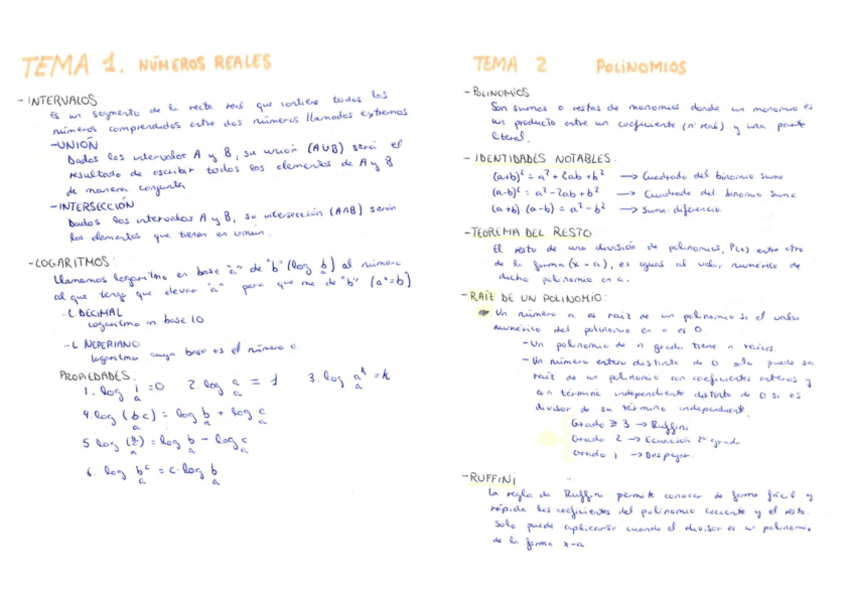 TEMA 1. NÚMEROS REALES
- INTERVALOS:
Es un segmento de la recta real que contiene todos los
números comprendidos entre dos números llamados extremos
- UNIÓN
Dados los intervalos A y B, su unión (A∪B) será el
resultado de escribir todos los elementos de A y B
de manera conjunta
- INTERSECCIÓN
Dados los intervalos A y B, su intersección (A∩B) serán
los elementos que tienen en común.
- LOGARITMOS:
Llamamos logaritmo en base "a" de "b" (log_a b) al número
al que tengo que elevar "a" para que me de "b" (aˣ=b)
- L DECIMAL
Logaritmo en base 10
- L NEPERIANO
Logaritmo cuya base es el número e.
PROPIEDADES:
1. log_a 1 = 0 2. log_a a = 1 3. log_a aᵏ = k
4. log_a (b c) = log_a b + log_a c
5 log_a (b/c) = log_a b - log_a c
6. log_a bᶜ = c · log_a b
TEMA 2 POLINOMIOS
- POLINOMIOS
Son sumas o restas de monomios donde un monomio es
un producto entre un coeficiente (nº real) y una parte
literal.
- IDENTIDADES NOTABLES:
(a+b)² = a² + 2ab + b² → Cuadrado del binomio suma
(a-b)² = a² - 2ab + b² → Cuadrado del binomio suma
(a+b) · (a-b) = a² - b² → Suma diferencia
- TEOREMA DEL RESTO:
El resto de una división de polinomios, P(x) entre otro
de la forma (x - a), es igual al valor numérico de
dicho polinomio en a.
- RAÍZ DE UN POLINOMIO:
Un número a es raíz de un polinomio si el valor
numérico del polinomio en a es 0.
- Un polinomio de n grado tiene n raíces
- Un número entero distinto de 0 solo puede ser
raíz de un polinomio con coeficientes enteros y
con término independiente distinto de 0 si es
divisor de su término independiente.
Grado ≥ 3 → Ruffini
Grado 2 → Ecuación 2º grado
Grado 1 → Despejar.
- RUFFINI
La regla de Ruffini permite conocer de forma fácil y
rápida los coeficientes del polinomio cociente y el resto.
Solo puede aplicarse cuando el divisor es un polinomio
de la forma x-a